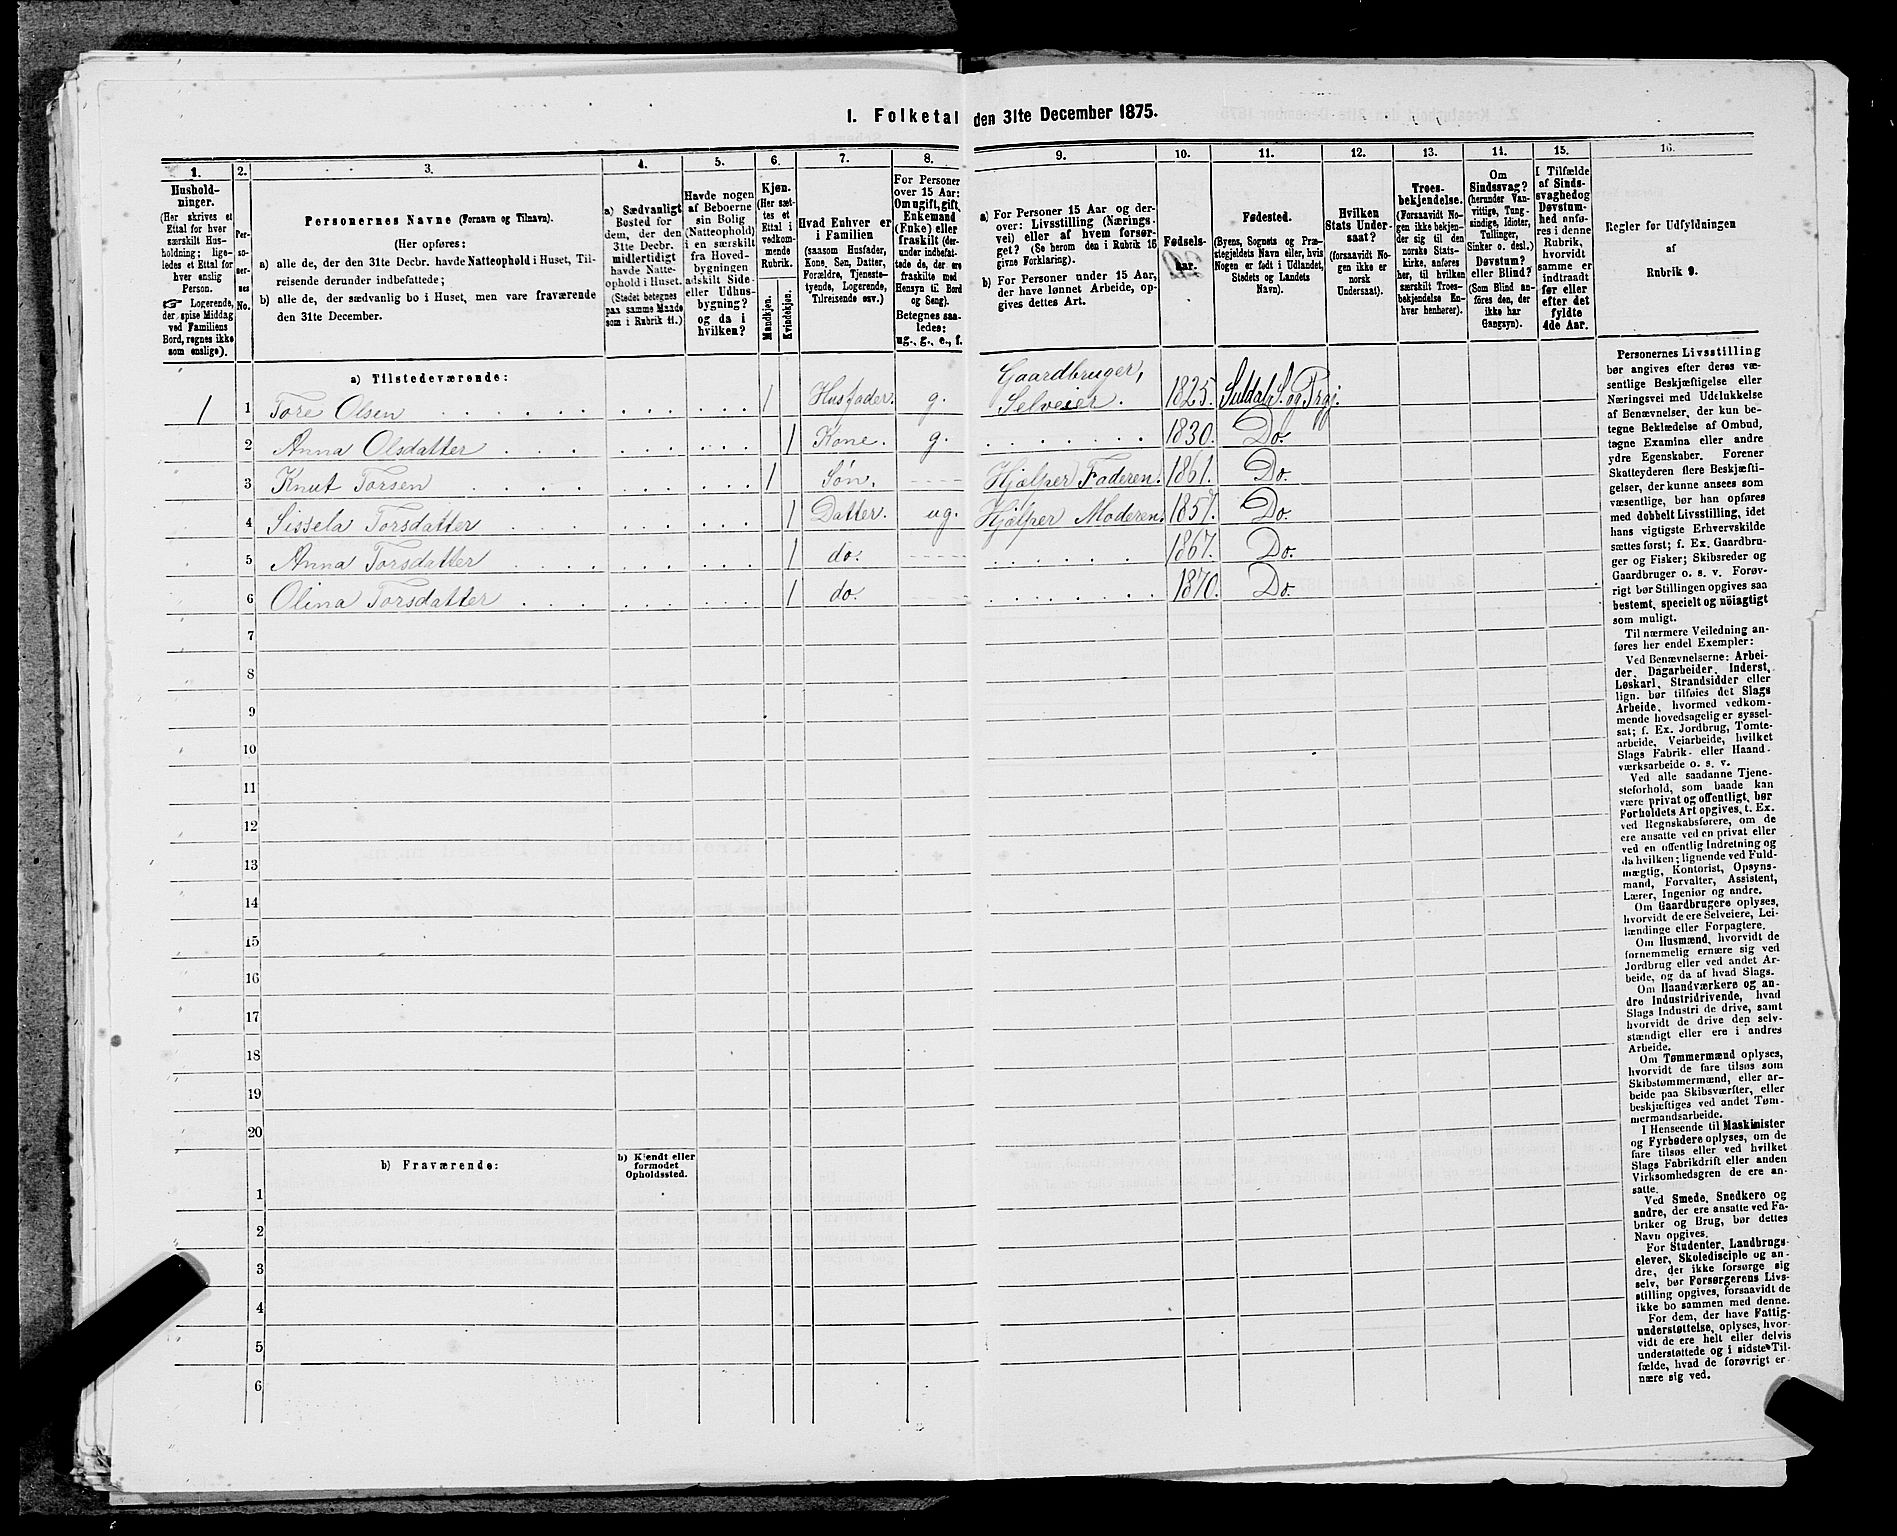 I. Folketal den 31te December 1875.
1.
Hushold-
ninger.
(Her skrives et
Ettal for hver
særskilt Hus-
holdning; lige-
ledes et Ettal for
hver enslig
Person.
☞ Logerende,
der spise Middag
ved Familiens
Bord, regnes ikke
som enslige).
2.
Per-
so-
ner-
nes
No.
3.
Personernes Navne (Fornavn og Tilnavn).
(Her opføres:
a) alle de, der den 31te Decbr. havde Natteophold i Huset, Til-
reisende derunder indbefattede;
b) alle de, der sædvanlig bo i Huset, men vare fraværende
den 31te December.
4.
a) Sædvanligt
Bosted for
dem, der den
31te Decbr.
midlertidigt
havde Natte-
ophold i Huset.
(Stedet betegnes
paa samme Maade
som i Rubrik 11.)
5.
Havde nogen
af Beboerne
sin Bolig
(Natteophold)
i en særskilt
fra Hoved-
bygningen
adskilt Side-
eller Udhus-
bygning?
og da i
hvilken?
6.
Kjøn.
(Her sæt-
tes et
Ettal i
vedkom-
mende
Rubrik.
Mandkjøn.
Kvindekjøn.
7.
Hvad Enhver er
i Familien
(saasom Husfader,
Kone, Søn, Datter,
Forældre, Tjeneste-
tyende, Logerende,
Tilreisende osv.)
8.
For Personer
over 15 Aar:
Om ugift, gift,
Enkemand
(Enke) eller
fraskilt (der-
under indbefat-
tede de, der ere
fraskilte med
Hensyn til Bord
og Seng).
Betegnes saa-
ledes:
ug., g., e., f.
9.
a) For Personer 15 Aar og der-
over: Livsstilling (Nærings-
vei) eller af hvem forsør-
get? (Se herom den i Rubrik 16
givne Forklaring).
b) For Personer under 15 Aar,
der have lønnet Arbeide, op-
gives dettes Art.
10.
Fødsels-
aar.
11.
Fødested.
(Byens, Sognets og Præ-
stegjeldets Navn eller, hvis
Nogen er født i Udlandet,
Stedets og Landets
Navn).
12.
Hvilken
Stats Under-
saat?
(forsaavidt No-
gen ikke er
norsk
Undersaat).
13.
Troes-
bekjendelse.
(Forsaavidt No-
gen ikke bekjen-
der sig til den
norske Stats-
kirke, anføres
her, til hvilken
særskilt Troes-
bekjendelse En-
hver henhører).
14.
Om
Sindssvag?
(herunder Van-
vittige, Tung-
sindige, Idioter,
Tullinger,
Sinker o. desl.)
Døvstum?
eller Blind?
(Som Blind an-
føres den, der
ikke har
Gangsyn).
15.
I Tilfælde
af Sinds-
svaghed og
Døvstum-
hed anfø-
res i denne
Rubrik,
hvorvidt
samme er
indtraadt
før eller
efter det
fyldte
4de Aar.
16.
Regler for Udfyldningen
af
Rubrik 9.
a) Tilstedeværende:
1 1 Tore Olsen 1 Husfader. g. Gaardbruger, Selveier. 1825. Suldal S. og Prgj.
2 Anna Olsdatter 1 Kone. g. 1830. Do.
3 Knut Torsen 1 Søn. Hjælper Faderen. 1861. Do.
4 Sissela Torsdatter 1 Datter. ug. Hjælper Moderen. 1857. Do.
5 Anna Torsdatter 1 do. 1867. Do.
6 Olina Torsdatter 1 do. 1870. Do.
7
8
9
10
11
12
13
14
15
16
17
18
19
20
b) Fraværende:
b) Kjendt eller
formodet
Opholdssted.
1
2
3
4
5
6
Personernes Livsstilling
bør angives efter deres væ-
sentlige Beskjæftigelse eller
Næringsvei med Udelukkelse
af Benævnelser, der kun be-
tegne Beklædelse af Ombud,
tagne Examina eller andre
ydre Egenskaber. Forener
Skatteyderen flere Beskjæfti-
gelser, der kunne ansees som
væsentlige, bør han opføres
med dobbelt Livsstilling, idet
hans vigtigste Erhvervskilde
sættes først; f. Ex. Gaardbru-
ger og Fisker; Skibsreder og
Gaardbruger o. s. v. Forøv-
rigt bør Stillingen opgives saa
bestemt, specielt og nöiagtigt
som muligt.
Til nærmere Veiledning an-
føres her endel Exempler:
Ved Benævnelserne: Arbei-
der, Dagarbeider, Inderst,
Løskarl, Strandsidder eller
lign. bør tilføies det Slags
Arbeide, hvormed vedkom-
mende hovedsagelig er syssel-
sat; f. Ex. Jordbrug, Tomte-
arbeide, Veiarbeide, hvilket
Slags Fabrik- eller Haand-
værksarbeide o. s. v.
Ved alle saadanne Tjene-
steforhold, som baade kan
være privat og offentligt, bør
Forholdets Art opgives, t. Ex.
ved Regnskabsførere, om de
ere ansatte ved en privat eller
ved en offentlig Indretning og
da hvilken; lignende ved Fuld-
mægtig, Kontorist, Opsyns-
mand, Forvalter, Assistent,
Lærer, Ingeniør og andre.
Om Gaardbrugere oplyses,
hvorvidt de ere Selveiere, Lei-
lændinge eller Forpagtere.
Om Husmænd, hvorvidt de
fornemmelig ernære sig ved
Jordbrug eller ved andet Ar-
beide, og da af hvad Slags.
Om Haandværkere og an-
dre Industridrivende, hvad
Slags Industri de drive, samt
hvorvidt de drive den selv-
stændigt eller ere i andres
Arbeide.
Om Tømmermænd oplyses,
hvorvidt de fare tilsøs som
Skibstømmermænd, eller ar-
beide paa Skibsværfter, eller
beskjæftiges ved andet Tøm-
mermandsarbeide.
I Henseende til Maskinister
og Fyrbødere oplyses, om de
fare tilsøs eller ved hvilket
Slags Fabrikdrift eller anden
Virksomhedsgren de ere an-
satte.
Ved Smede, Snedkere og
andre, der ere ansatte ved Fa-
briker og Brug, bør dettes
Navn opgives.
For Studenter, Landbrugs-
elever, Skoledisciple og an-
dre, der ikke forsørge sig
selv, bør Forsørgerens Livs-
stilling opgives, forsaavidt de
ikke bo sammen med denne.
For dem, der have Fattig-
understøttelse, oplyses, hvor-
vidt de ere helt eller delvis
understøttede og i sidste Til-
fælde, hvad de forøvrigt er-
nære sig ved.